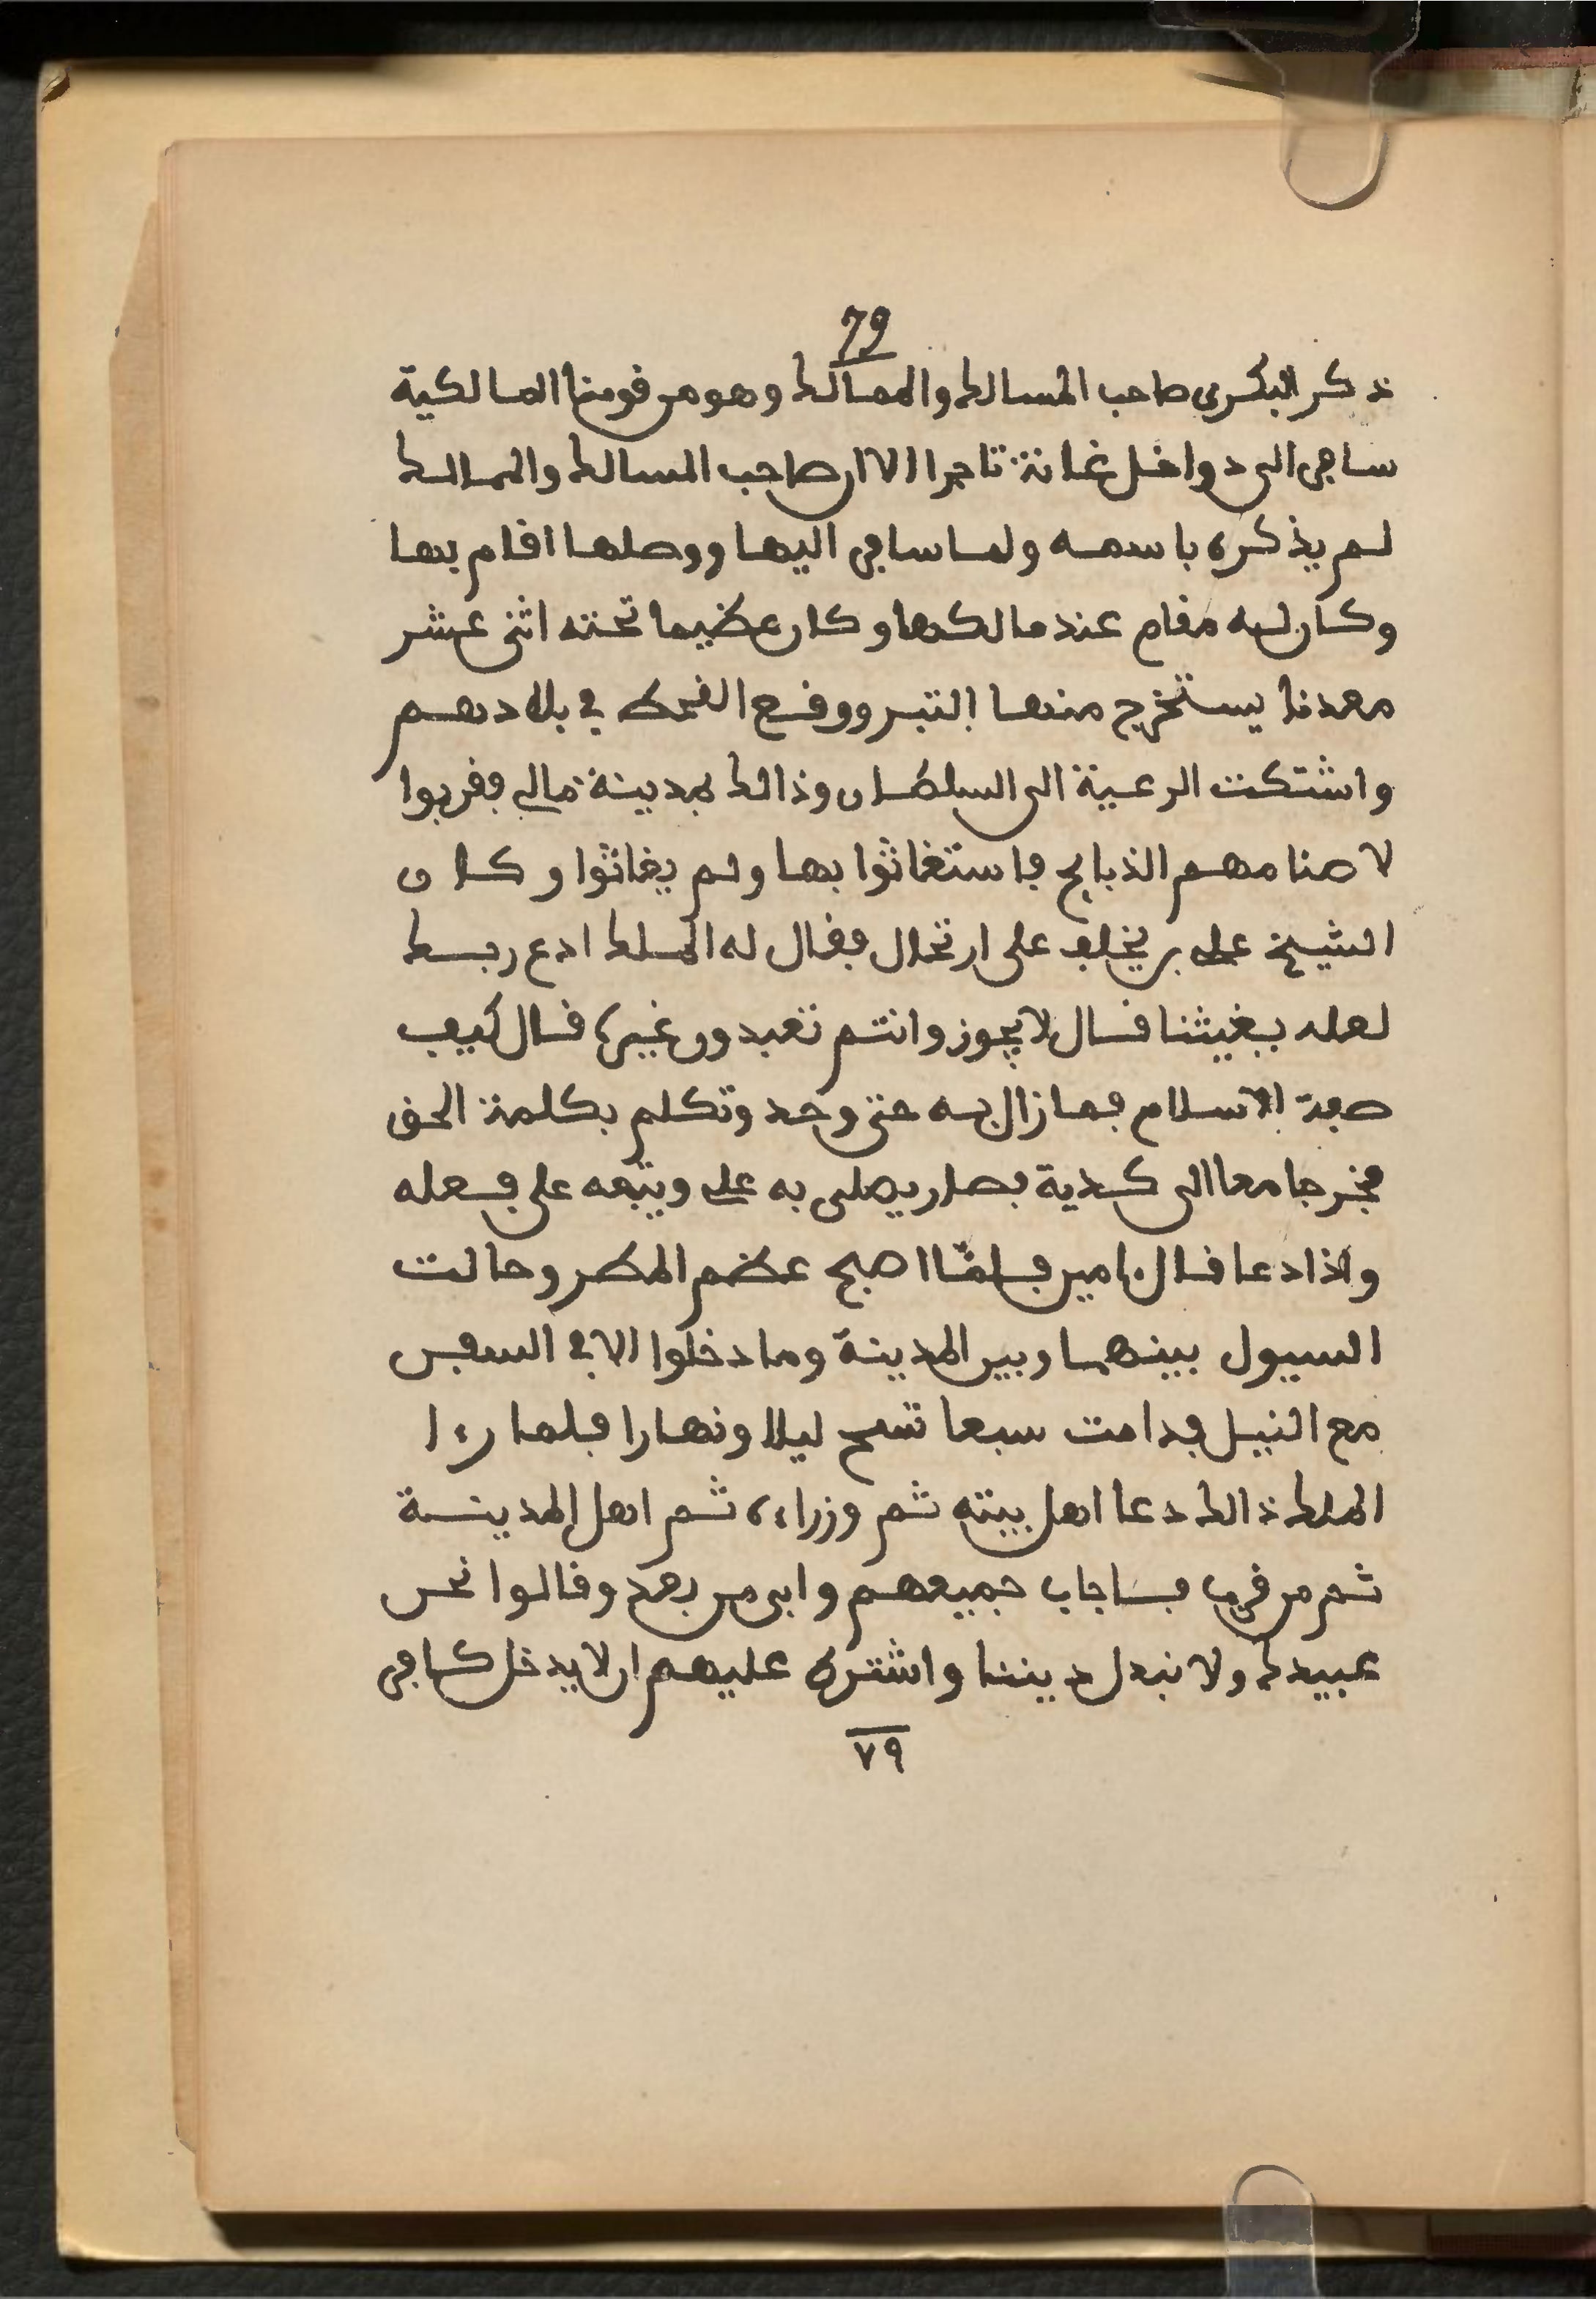 79
ذكر البكرى صاحب المسالك والممالك وهو من قومنا المالكية
سافر الى دواخل غانة تاجرا الا ان صاحب المسالك والممالك
لم يذكره باسمه ولما سافر اليها ووصلها اقام بها
وكان له مقام عند مالكها وكان عظيما تحته اثنى عشر
معدنا يستخرج منها التبر ووقع القحط في بلادهم
واشتكت الرعية الى السلطان وذالك بمدينة مالي فقربوا
لاصنامهم الذبايح فاستغاثوا بها ولم يغاثوا وكان
الشيخ على بن يخلف على ارتحال فقال له الملك ادع ربك
لعله يغيثنا قال لا يجوز وانتم تعبدون غيره قال كيف
صفة الاسلام فما زال به حتى وحد وتكلم بكلمة الحق
فخرجا معا الى كدية فصار يصلى به على ويتبعه على فعله
واذا دعا قال ءامين فلمّا اصبح عظم المطر وحالت
السيول بينهما وبين المدينة وما دخلوا الا في السفن
مع النيل فدامت سبعا تسح ليلا ونهارا فلما رءا
الملك ذالك دعا اهل بيته ثم وزراءه ثم اهل المدينة
ثم من قرب فاجاب جميعهم وابى من بعد وقالوا نحن
عبيدك ولا نبدل ديننا واشترط عليهم ان لا يدخل كافر
٧٩